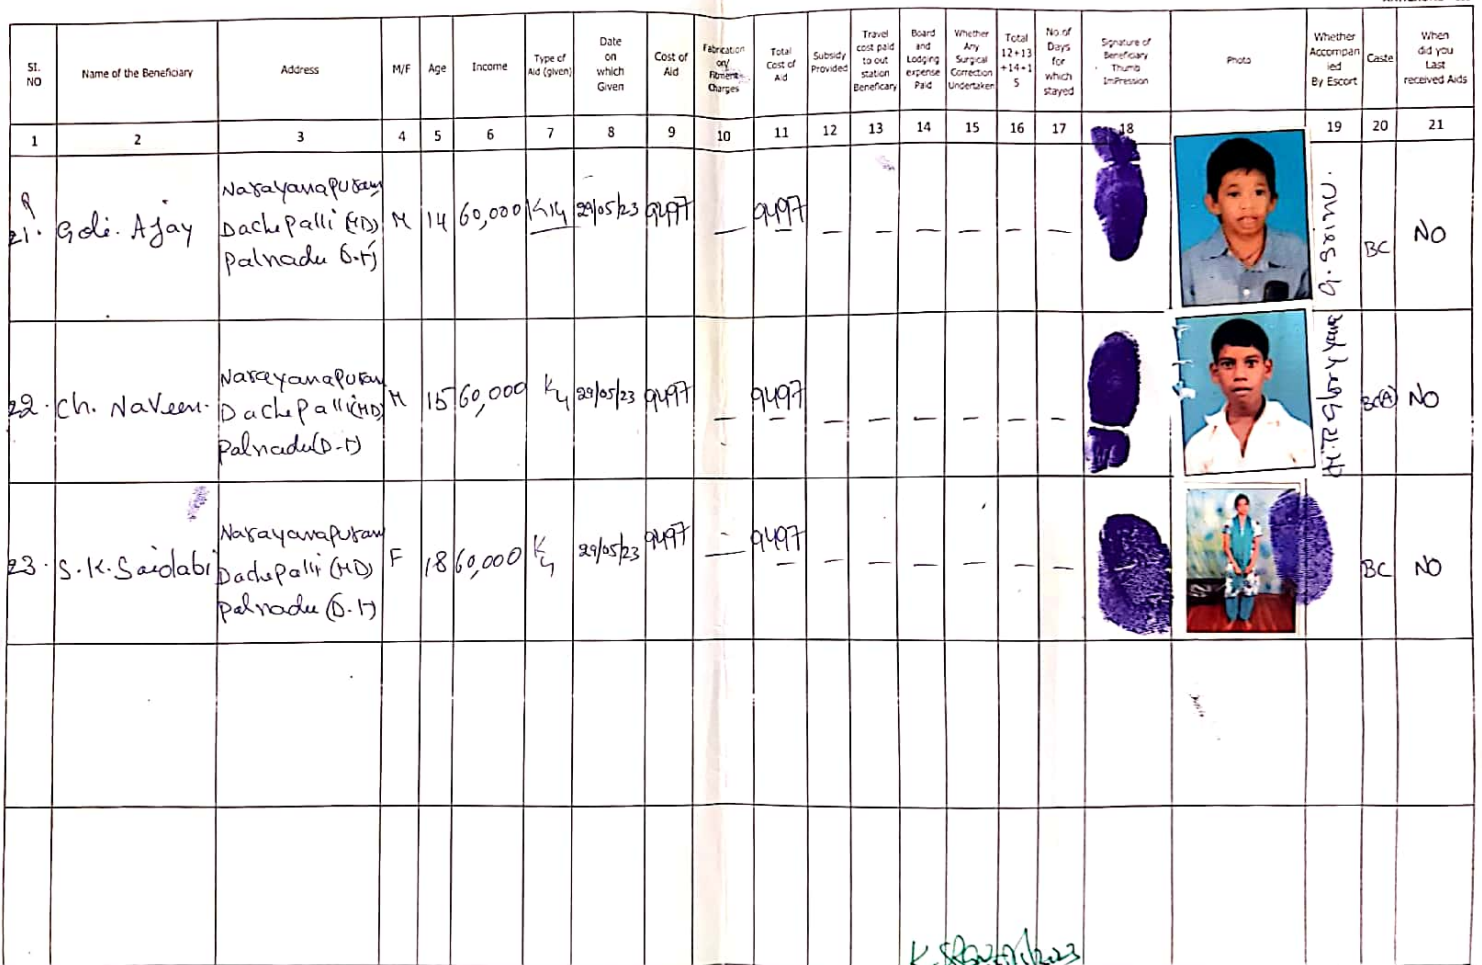 SI. NO
Name of the Beneficiary
Address
M/F
Age
Income
Type of Aid (given)
Date on which Given
Cost of Aid
Fabrication on/ Fitment Charges
Total Cost of Aid
Subsidy Provided
Travel cost paid to out station Beneficiary
Board and Lodging expense Paid
Whether Any Surgical Correction Undertaken
Total 12+13 +14+1 5
No.of Days for which stayed
Signature of Beneficiary Thumb ImPression
Photo
Whether Accompan ied By Escort
Caste
When did you Last received Aids
1 2 3 4 5 6 7 8 9 10 11 12 13 14 15 16 17 18 19 20 21
21. Goli. Ajay
Narayanapuram
Dachepalli (MD)
Palnadu (D.t)
M 14 60,000 29/05/23 9497 — 9497 — — — — — —
G. Srinu.
BC NO
22. Ch. Naveen.
Narayanapuram
Dachepalli (MD)
Palnadu (D.t)
M 15 60,000 K4 29/05/23 9497 — 9497 — — — — — —
BC(A) NO
23. S.K. Saidabi
Narayanapuram
Dachepalli (MD)
Palnadu (D.t)
F 18 60,000 29/05/23 9497 — 9497 — — — — — —
BC NO